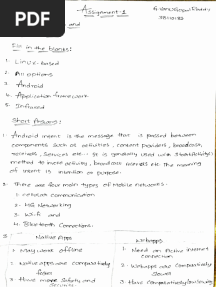 PDF
Assignment-1
and
Fill in the blanks:
1. Linux-based
2. All options
3. Android
4. Application framework
5. Infrared
Short Answers:
1. Android intent is the message that is passed between
components such as activities, content providers, broadcast
receivers, services etc.. It is generally used with
method to invoke activity, broadcast receivers etc. The meaning
of intent is intention or purpose.
2. There are four main types of Mobile networks.
1. cellular communication
2. Networking
3. Wi-Fi and
4. Bluetooth Connections.
3. Native Apps
Web apps
1. May work offline
1. Need an Active internet
connection
2. Native apps are comparatively
faster
2. Web apps are comparatively
slower
3. Have more safety and
3. Have comparatively